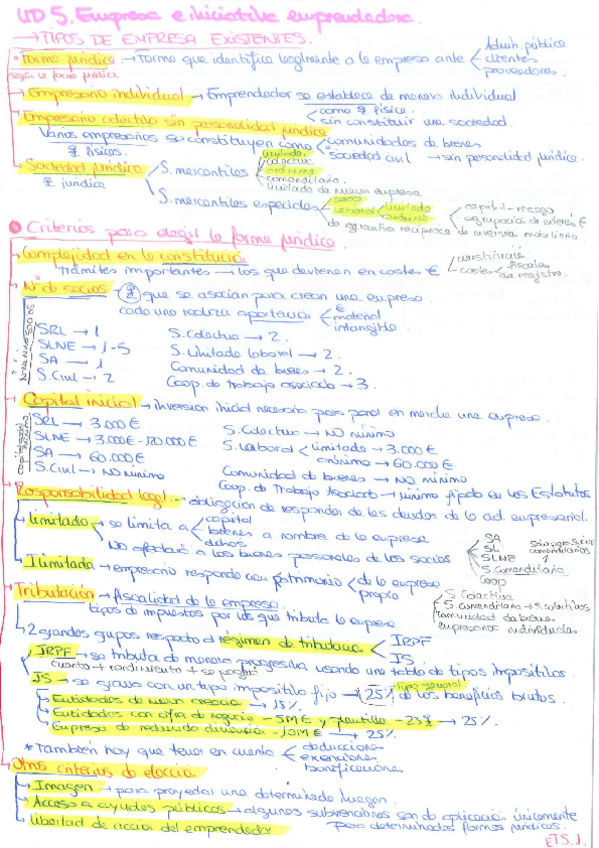 UD 5. Empresa e iniciativa emprendedora
→ TIPOS DE EMPRESA EXISTENTES.
Forma jurídica → forma que identifica legalmente a la empresa ante
Admin. pública
clientes
proveedores.
según la forma jurídica
Empresario individual → Emprendedor se establece de manera individual
como física.
sin constituir una sociedad.
Empresario colectivo sin personalidad jurídica
Varios empresarios se constituyen como
físicos.
comunidades de bienes
sociedad civil → sin personalidad jurídica.
Sociedad jurídica
jurídica
S. mercantiles
limitada
colectiva
anónima
comanditaria
limitada de nueva empresa
S. mercantiles especiales
coop
laboral
limitada
anónima
de garantía recíproca
capital-riesgo
agrupación de interés €
de inversión mobiliaria
Criterios para elegir la forma jurídica
Complejidad en la constitución
Trámites importantes → los que devienen en costes €
constitución
costes
fiscales
de registro.
Nº de socios → que se asocian para crear una empresa
cada uno realiza aportación
€
material
intangible
SRL → 1
SLNE → 1-5
SA → 1
S. Civil → 2
S. Colectiva → 2.
S. Limitada laboral → 2.
Comunidad de bienes → 2.
Coop. de trabajo asociado → 3.
Capital inicial → inversión inicial necesaria para poner en marcha una empresa.
SRL → 3.000 €
SLNE → 3.000€ - 120.000 €
SA → 60.000 €
S. Civil → NO mínimo
S. Colectiva → NO mínimo
S. Laboral
limitada → 3.000 €
anónima → 60.000 €
Comunidad de bienes → NO mínimo
Coop. de Trabajo Asociado → mínimo fijado en los Estatutos
Responsabilidad legal → obligación de responder de las deudas de la act. empresarial.
Limitada → se limita a
capital
bienes a nombre de la empresa
No afectará a los bienes personales de los socios
SA
SL
SLNE
S. comanditaria
Coop
Ilimitada → empresario responde con patrimonio
de la empresa
propio
S. Colectiva
S. comanditaria → s. colectivos
comunidad de bienes
empresarios individuales
Tributación → fiscalidad de la empresa
tipos de impuestos por los que tributa la empresa
2 grandes grupos respecto al régimen de tributación
IRPF
IS
IRPF → se tributa de manera progresiva usando una tabla de tipos impositivos.
cuanto + rendimiento + se paga
IS → se grava con un tipo impositivo fijo → 25% de los beneficios brutos.
tipo general
Entidades de nueva creación → 15%.
Entidades con cifra de negocio - 5M€ y plantilla - 25 → 25%.
Empresa de reducida dimensión - 10M € → 25%.
* También hay que tener en cuenta
deducciones
exenciones
bonificaciones
Otros criterios de elección
Imagen → para proyectar una determinada imagen.
Acceso a ayudas públicas → algunas subvenciones son de aplicación únicamente
para determinadas formas jurídicas.
Libertad de acción del emprendedor